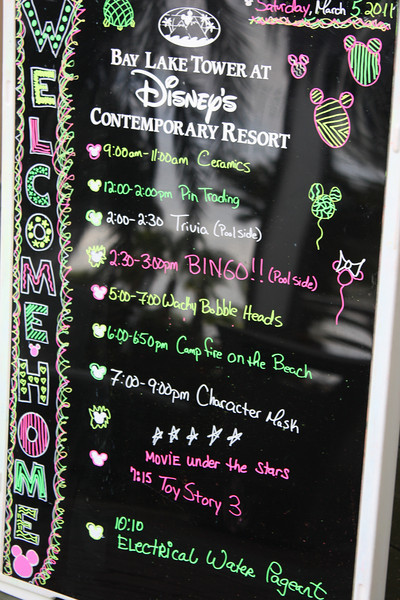 WELCOME HOME
Saturday, March 5 2011
BAY LAKE TOWER AT
DISNEY'S
CONTEMPORARY RESORT
9:00am-11:00am Ceramics
12:00-2:00pm Pin Trading
2:00-2:30 Trivia (Poolside)
2:30-3:00pm BINGO!! (Poolside)
5:00-7:00 Wacky Bobble Heads
6:00-650pm Campfire on the Beach
7:00-9:00pm Character Mask
Movie under the Stars
7:15 Toy Story 3
10:10
Electrical Water Pageant